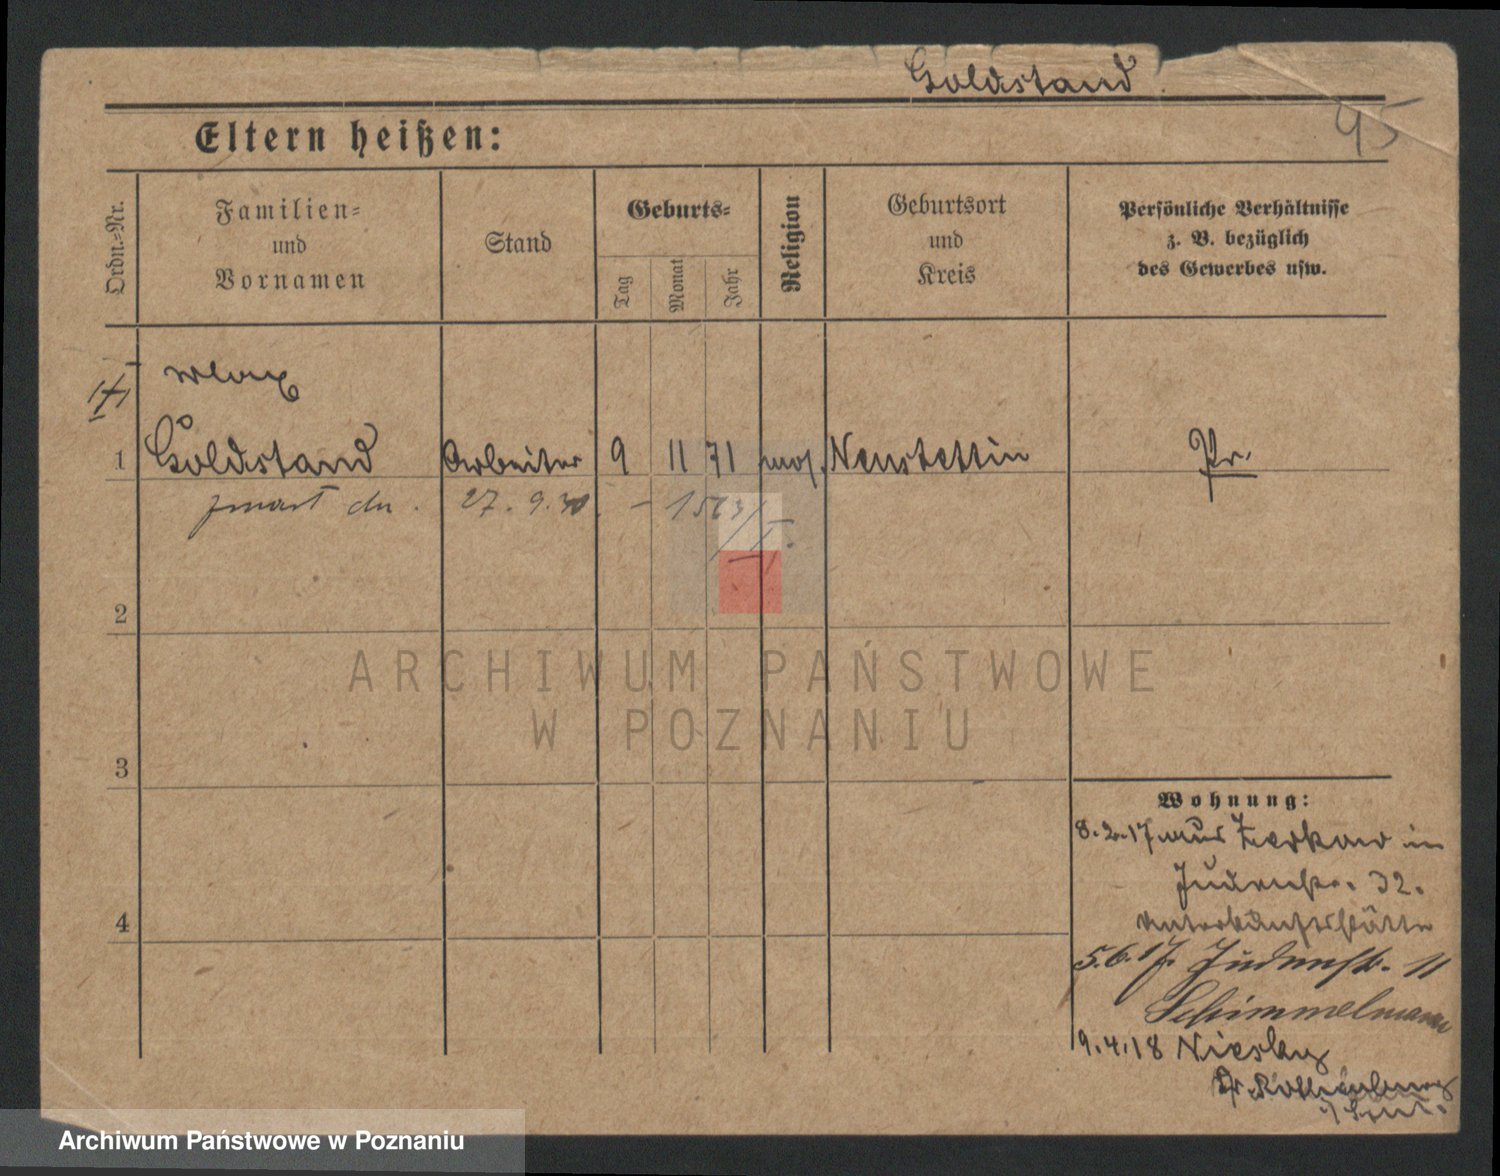 Goldstand
95
Eltern heißen:
Ordn.=Nr.
Familien=
und
Vornamen
Stand
Geburts=
Tag
Monat
Jahr
Religion
Geburtsort
und
Kreis
Persönliche Verhältnisse
z. B. bezüglich
des Gewerbes usw.
Max
1 Goldstand Arbeiter 9 11 71 mos. Neustettin Pr.
zmarł dn. 27. 9. 30. – 1563/I.
2
3
4
Wohnung:
8.2.17 aus Zerkow in
Judenstr. 32.
Unterkunftsstätte
5.6.17. Judenstr. 11
Schimmelmann
9.4.18 Niesky
Kr. Rothenburg
ARCHIWUM PAŃSTWOWE
W POZNANIU
Archiwum Państwowe w Poznaniu